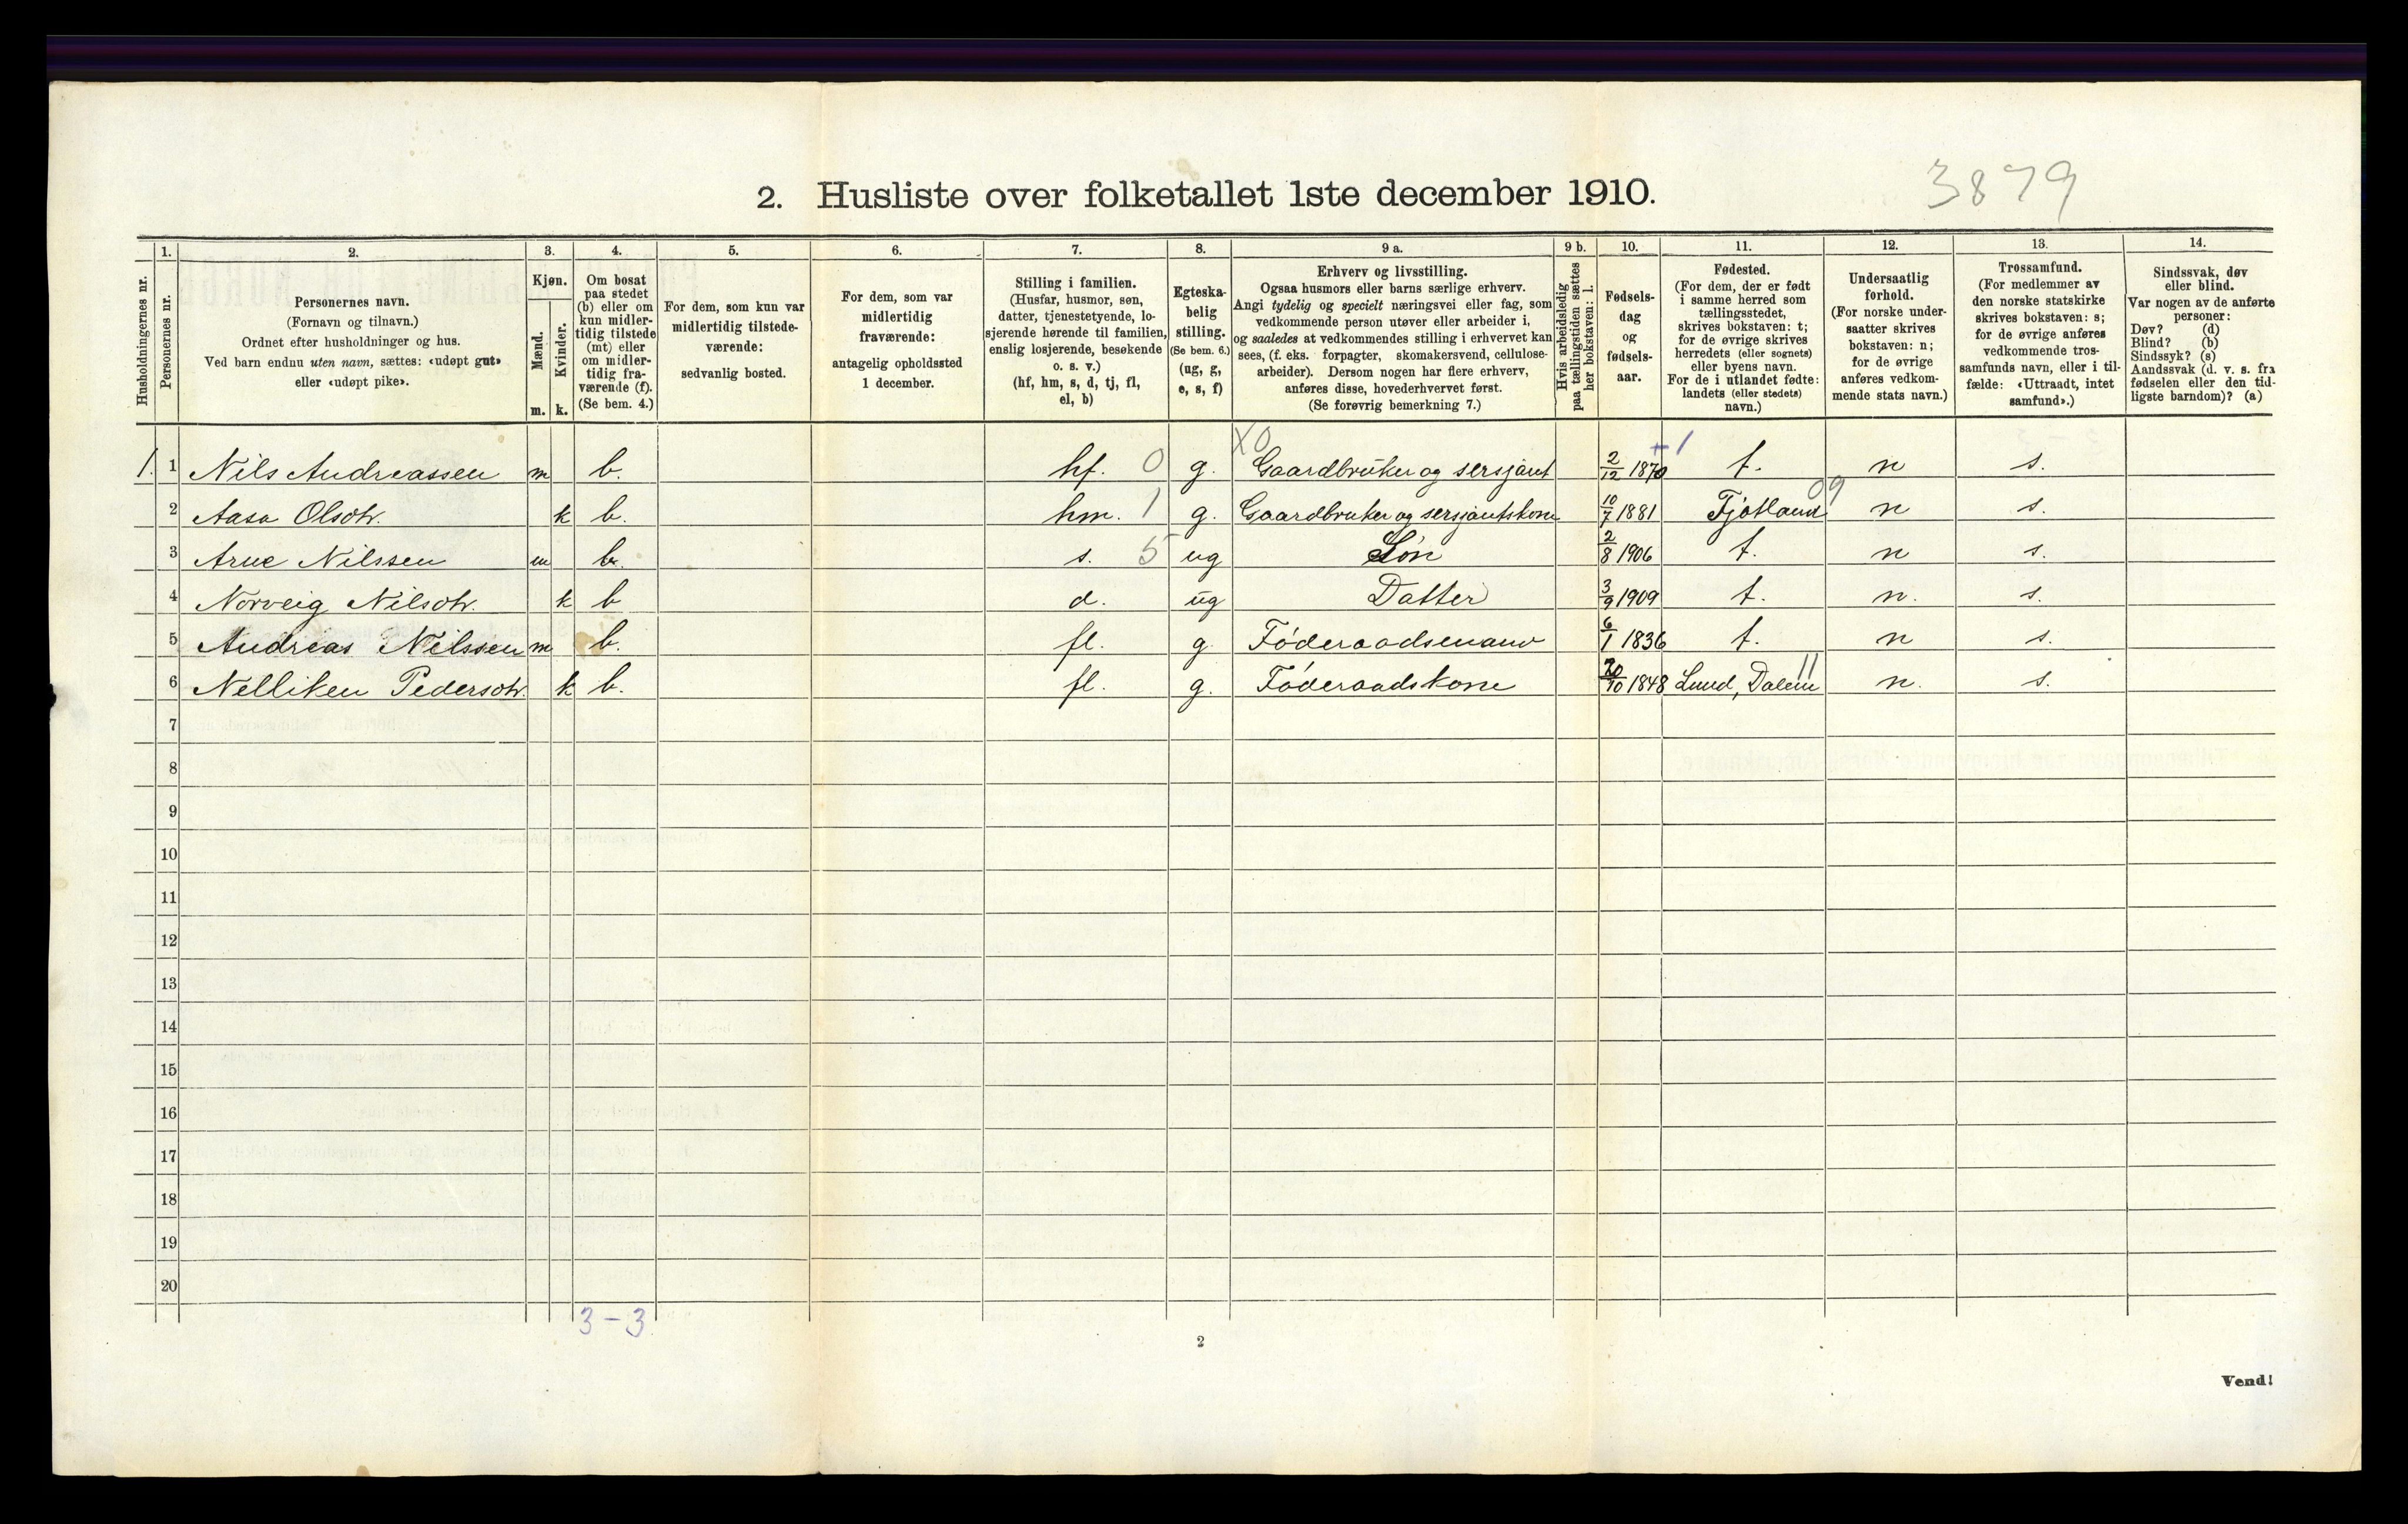 3879
2. Husliste over folketallet 1ste december 1910.
1. 2. 3. 4. 5. 6. 7. 8. 9 a. 9 b. 10. 11. 12. 13. 14.
Husholdningernes nr.
Personernes nr.
Personernes navn.
(Fornavn og tilnavn.)
Ordnet efter husholdninger og hus.
Ved barn endnu uten navn, sættes: «udøpt gut»
eller «udøpt pike».
Kjøn.
Mænd.
Kvinder.
m. k.
Om bosat
paa stedet
(b) eller om
kun midler-
tidig tilstede
(mt) eller
om midler-
tidig fra-
værende (f).
(Se bem. 4.)
For dem, som kun var
midlertidig tilstede-
værende:
sedvanlig bosted.
For dem, som var
midlertidig
fraværende:
antagelig opholdssted
1 december.
Stilling i familien.
(Husfar, husmor, søn,
datter, tjenestetyende, lo-
sjerende hørende til familien,
enslig losjerende, besøkende
o. s. v.)
(hf, hm, s, d, tj, fl,
el, b)
Egteska-
belig
stilling.
(Se bem. 6.)
(ug, g,
e, s, f)
Erhverv og livsstilling.
Ogsaa husmors eller barns særlige erhverv.
Angi tydelig og specielt næringsvei eller fag, som
vedkommende person utøver eller arbeider i,
og saaledes at vedkommendes stilling i erhvervet kan
sees, (f. eks. forpagter, skomakersvend, cellulose-
arbeider). Dersom nogen har flere erhverv,
anføres disse, hovederhvervet først.
(Se forøvrig bemerkning 7.)
Hvis arbeidsledig
paa tællingstiden sættes
her bokstaven: l.
Fødsels-
dag
og
fødsels-
aar.
Fødested.
(For dem, der er født
i samme herred som
tællingsstedet,
skrives bokstaven: t;
for de øvrige skrives
herredets (eller sognets)
eller byens navn.
For de i utlandet fødte:
landets (eller stedets)
navn.)
Undersaatlig
forhold.
(For norske under-
saatter skrives
bokstaven: n;
for de øvrige
anføres vedkom-
mende stats navn.)
Trossamfund.
(For medlemmer av
den norske statskirke
skrives bokstaven: s;
for de øvrige anføres
vedkommende tros-
samfunds navn, eller i til-
fælde: «Uttraadt, intet
samfund».)
Sindssvak, døv
eller blind.
Var nogen av de anførte
personer:
Døv? (d)
Blind? (b)
Sindssyk? (s)
Aandssvak (d. v. s. fra
fødselen eller den tid-
ligste barndom)? (a)
X0 +1
1. 1 Nils Andreassen m b. hf. 0 g. Gaardbruker og sersjant 2/12 1870 t. n s.
09
2 Aasa Olsdtr. k b. hm. 1 g. Gaardbruker og sersjantskone 10/7 1881 Fjotland n s.
3 Arne Nilssen m b. s. 5 ug Søn 2/8 1906 t. n s.
4 Norveig Nilsdtr. k b d. ug Datter 3/9 1909 t. n. s.
5 Andreas Nilssen m b. fl. g. Føderaadsmand 6/1 1836 t. n s.
11
6 Nelliken Pedersdtr. k b. fl. g. Føderaadskone 20/10 1848 Lund, Dalene n. s.
7
8
9
10
11
12
13
14
15
16
17
18
19
20
3-3
2
Vend!